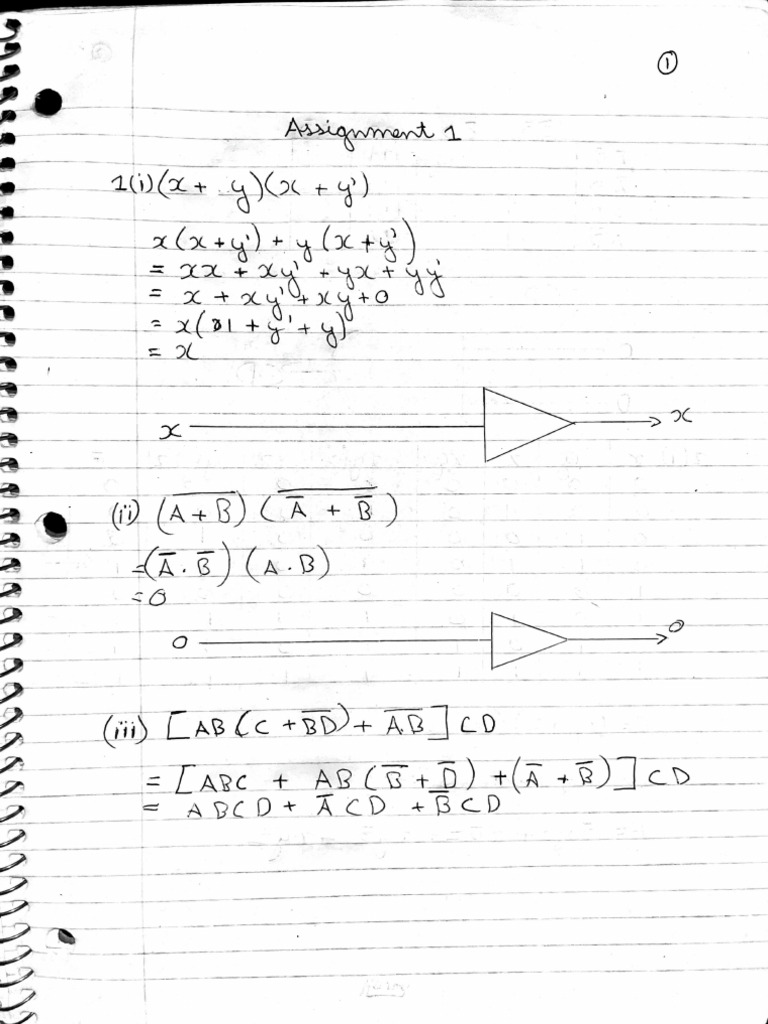 ①
Assignment 1
1(i) (x + y)(x + y')
x(x+y') + y(x+y')
= xx + xy' + yx + yy'
= x + xy' + xy + 0
= x(1 + y' + y)
= x
x x
(ii) (A̅ ̅+̅ ̅B̅) (A̅̅ ̅+̅ ̅B̅̅)
= (A̅ . B̅) (A . B)
= 0
0 0
(iii) [AB(C + B̅D̅) + A̅.̅B̅] CD
= [ABC + AB(B̅ + D̅) + (A̅ + B̅)] CD
= ABCD + A̅CD + B̅CD